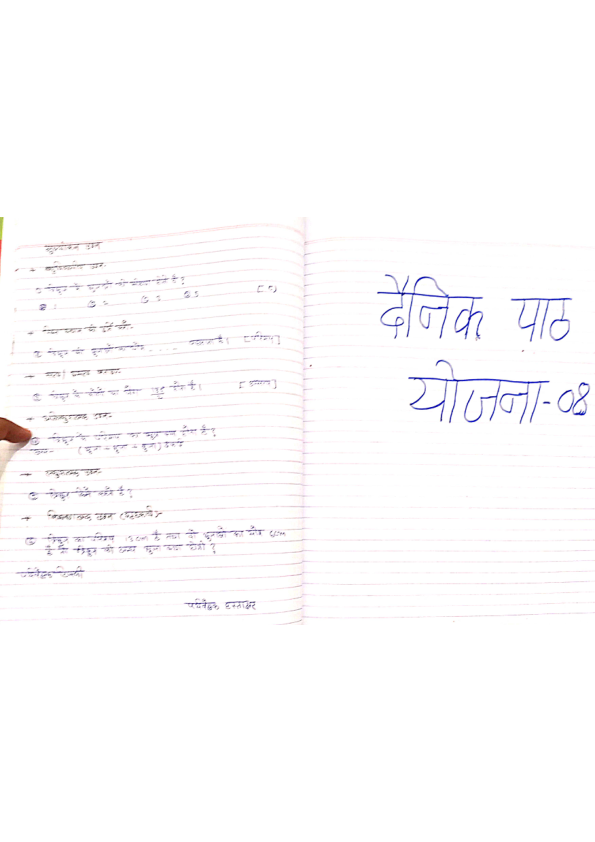 मूल्यांकन प्रश्न
→ बहुविकल्पीय प्रश्न-
① त्रिभुज में भुजाओं की संख्या होती है?
→ रिक्त स्थान की पूर्ति करो-
② त्रिभुज की भुजाओं का योग ..... कहलाता है। [परिमाप]
→ सत्य/असत्य बताओ-
③ त्रिभुज के कोणों का योग 180° होता है। [सत्य]
→ अतिलघुउत्तरीय प्रश्न-
④ त्रिभुज के परिमाप का सूत्र क्या होता है?
उत्तर- (भुजा + भुजा + भुजा) इकाई
→ लघुउत्तरीय प्रश्न-
⑤ त्रिभुज किसे कहते है?
→ निबन्धात्मक प्रश्न (गृहकार्य)-
⑥ त्रिभुज का परिमाप है तथा दो भुजाओं का योग
है तो त्रिभुज की अन्य भुजा क्या होगी?
पर्यवेक्षक टिप्पणी
पर्यवेक्षक हस्ताक्षर
दैनिक पाठ
योजना-08